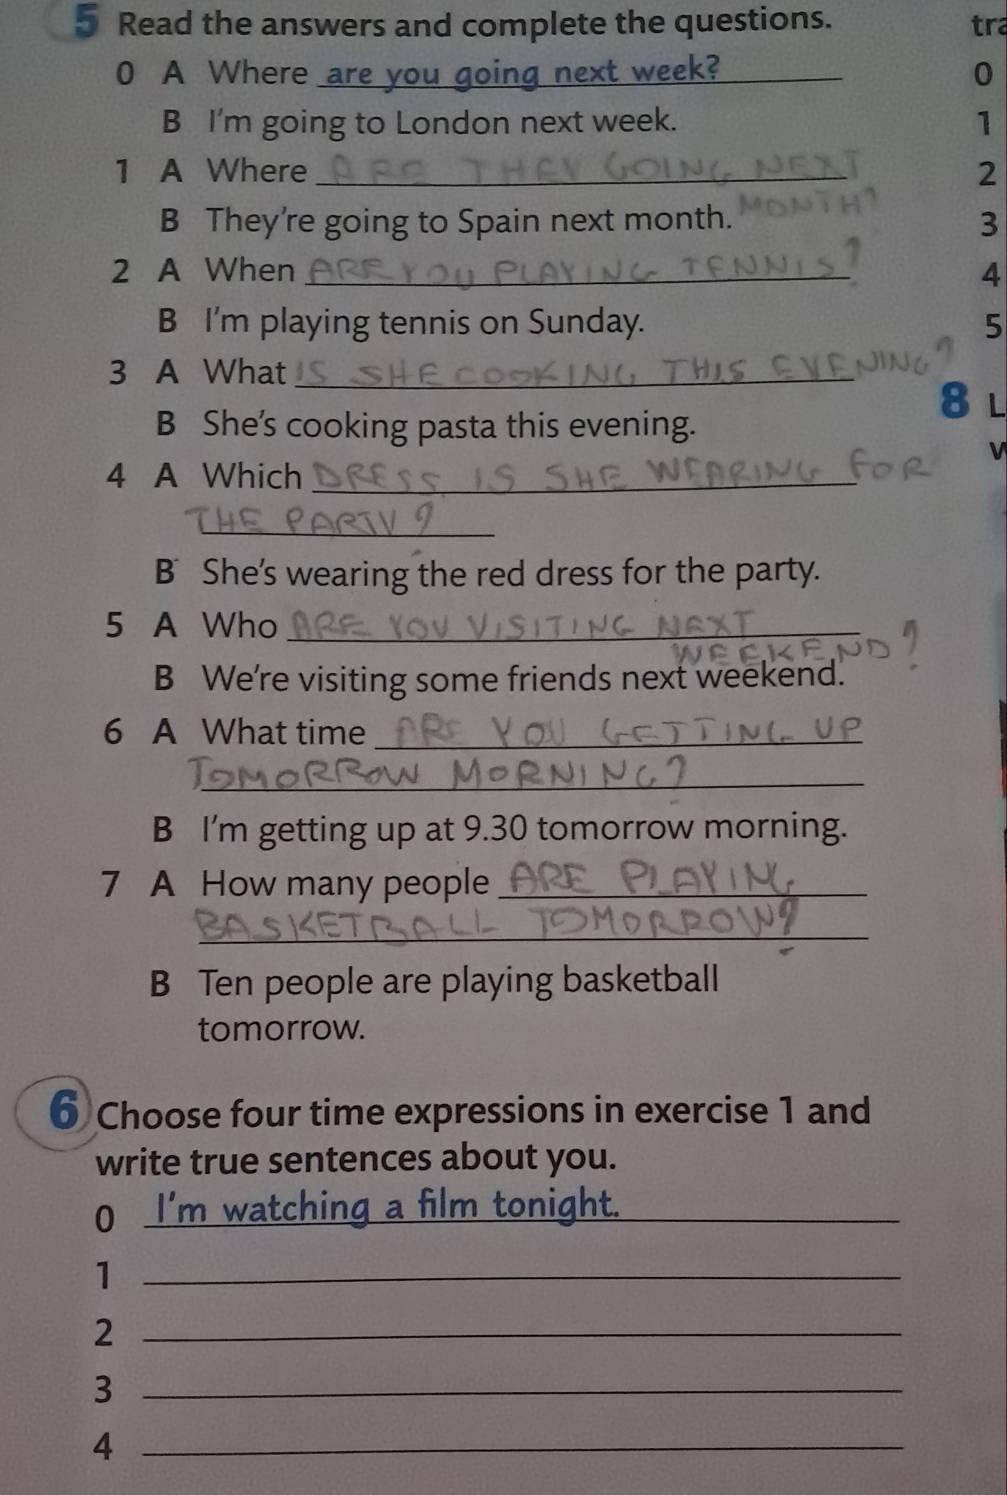 5 Read the answers and complete the questions.
0 A Where are you going next week?
B I'm going to London next week.
1 A Where ARE THEY GOING NEXT
MONTH?
B They're going to Spain next month.
2 A When ARE YOU PLAYING TENNIS?
B I'm playing tennis on Sunday.
3 A What IS SHE COOKING THIS EVENING?
B She's cooking pasta this evening.
4 A Which DRESS IS SHE WEARING FOR
THE PARTY?
B She's wearing the red dress for the party.
5 A Who ARE YOU VISITING NEXT
WEEKEND?
B We're visiting some friends next weekend.
6 A What time ARE YOU GETTING UP
TOMORROW MORNING?
B I'm getting up at 9.30 tomorrow morning.
7 A How many people ARE PLAYING
BASKETBALL TOMORROW?
B Ten people are playing basketball
tomorrow.
6 Choose four time expressions in exercise 1 and
write true sentences about you.
0 I'm watching a film tonight.
1
2
3
4
0
1
2
3
4
5
8